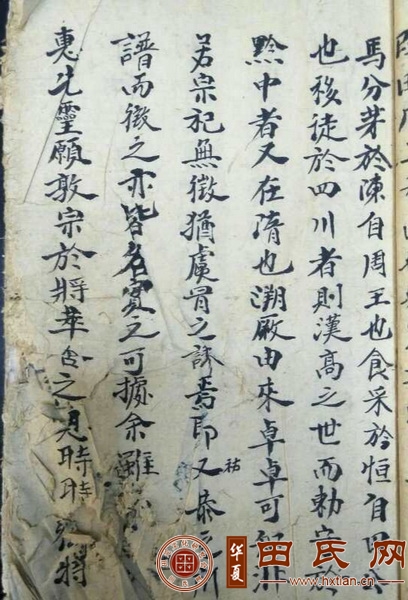 馬分芽於陳自周王也食采於恒自田公
也移徒於四川者則漢高之世而勅守於
黔中者又在隋也溯厥由來卓卓可
若宗祀無徵猶虞胥之誇焉即又恭
祐
譜而徵之亦皆名實之可據余雖
惠先靈願敦宗於將華 之 時時 將
华夏
田氏网
www.hxtian.cn